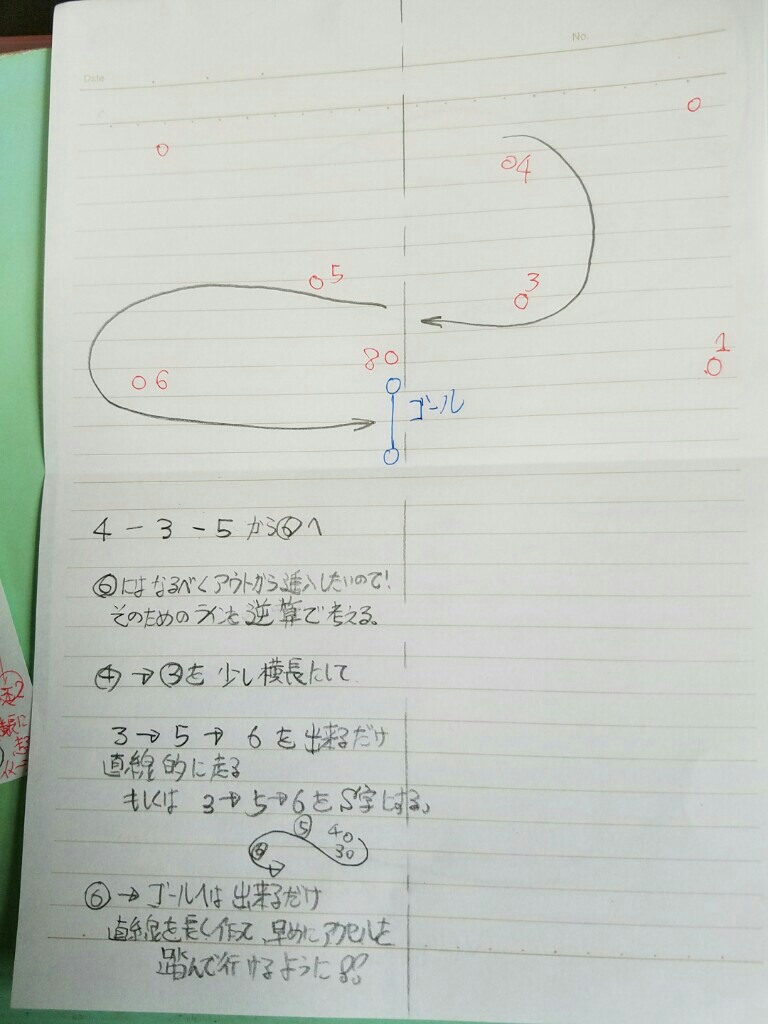 No.
Date
4
3
5
1
8
6
ゴール
4 - 3 - 5 から⑥へ
⑥にはなるべくアウトから進入したいので!
そのためのラインを逆算で考える。
④→③を少し横長にして
3→5→6を出来るだけ
直線的に走る
もしくは 3→5→6をS字にする。
⑤ 4
⑥ 3
⑥→ゴールへは出来るだけ
直線を長く作って、早めにアクセルを
踏んで行けるように!!